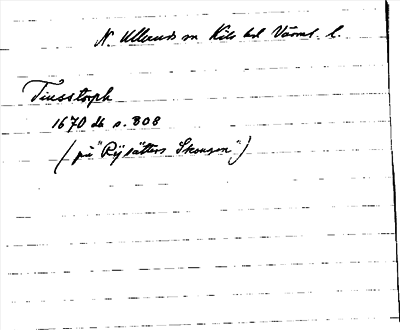 N. Ulleruds sn Kils hd Värml. l.
Tiusstorph
1670 db s. 808
(på "Rijsätters Skougen")